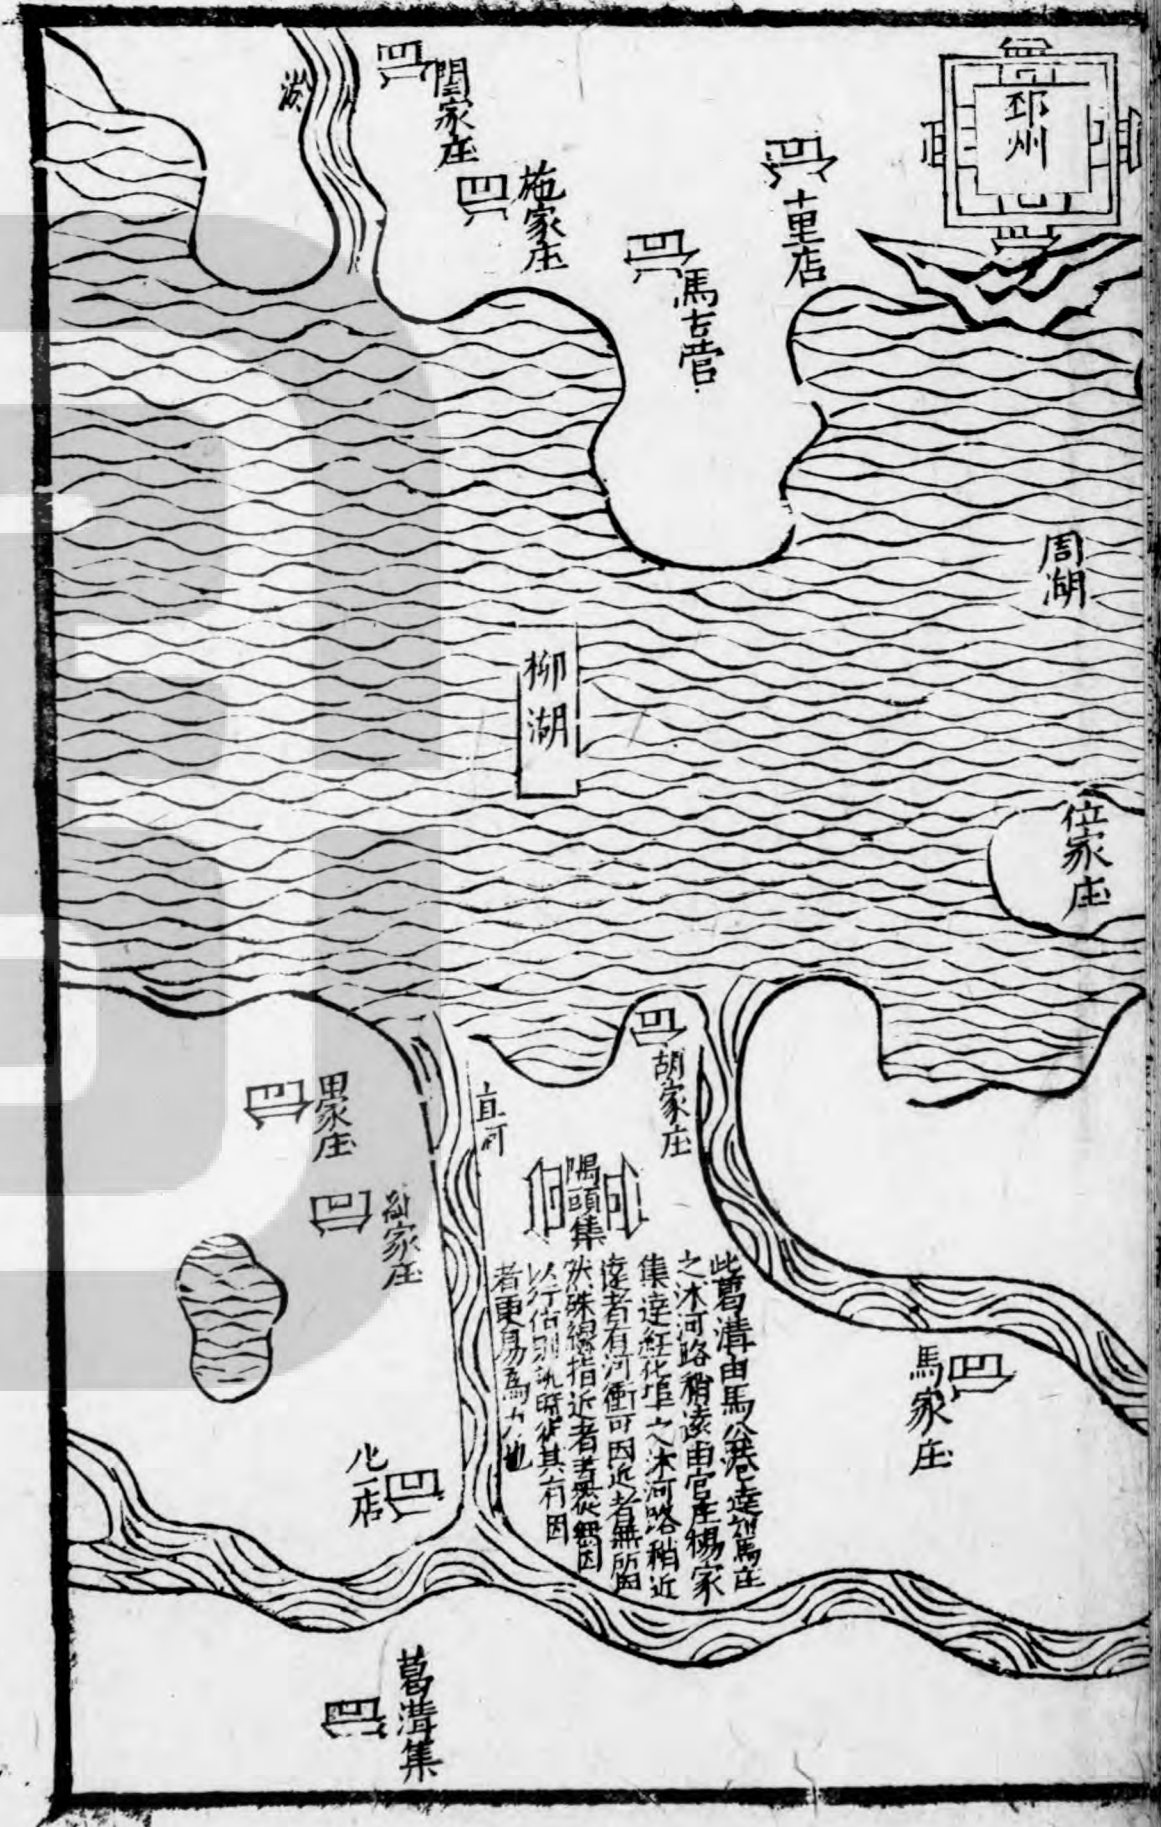 邳州
十里店
馬古營
施家庄
閻家庄
周湖
柳湖
位家庄
胡家庄
直河
隅頭集
田家庄
家庄
馬家庄
店
葛溝集
此葛溝由馬公港達劉馬庄
之沭河路稍遠由官庄楊家
集達紅花埠之沭河路稍近
遠者有河衝可因近者無所因
然殊線指近者
以行
者更易為力也